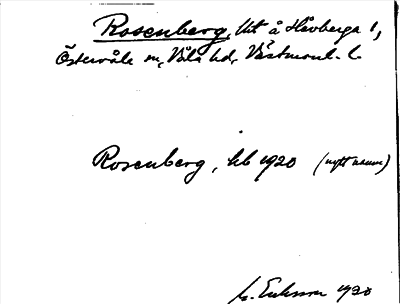 Rosenberg, lht å Hårberga 1,
Östervåla sn, Våla hd, Västmanl. l.
Rosenberg, kb 1920 (nytt namn)
Eriksson 1920